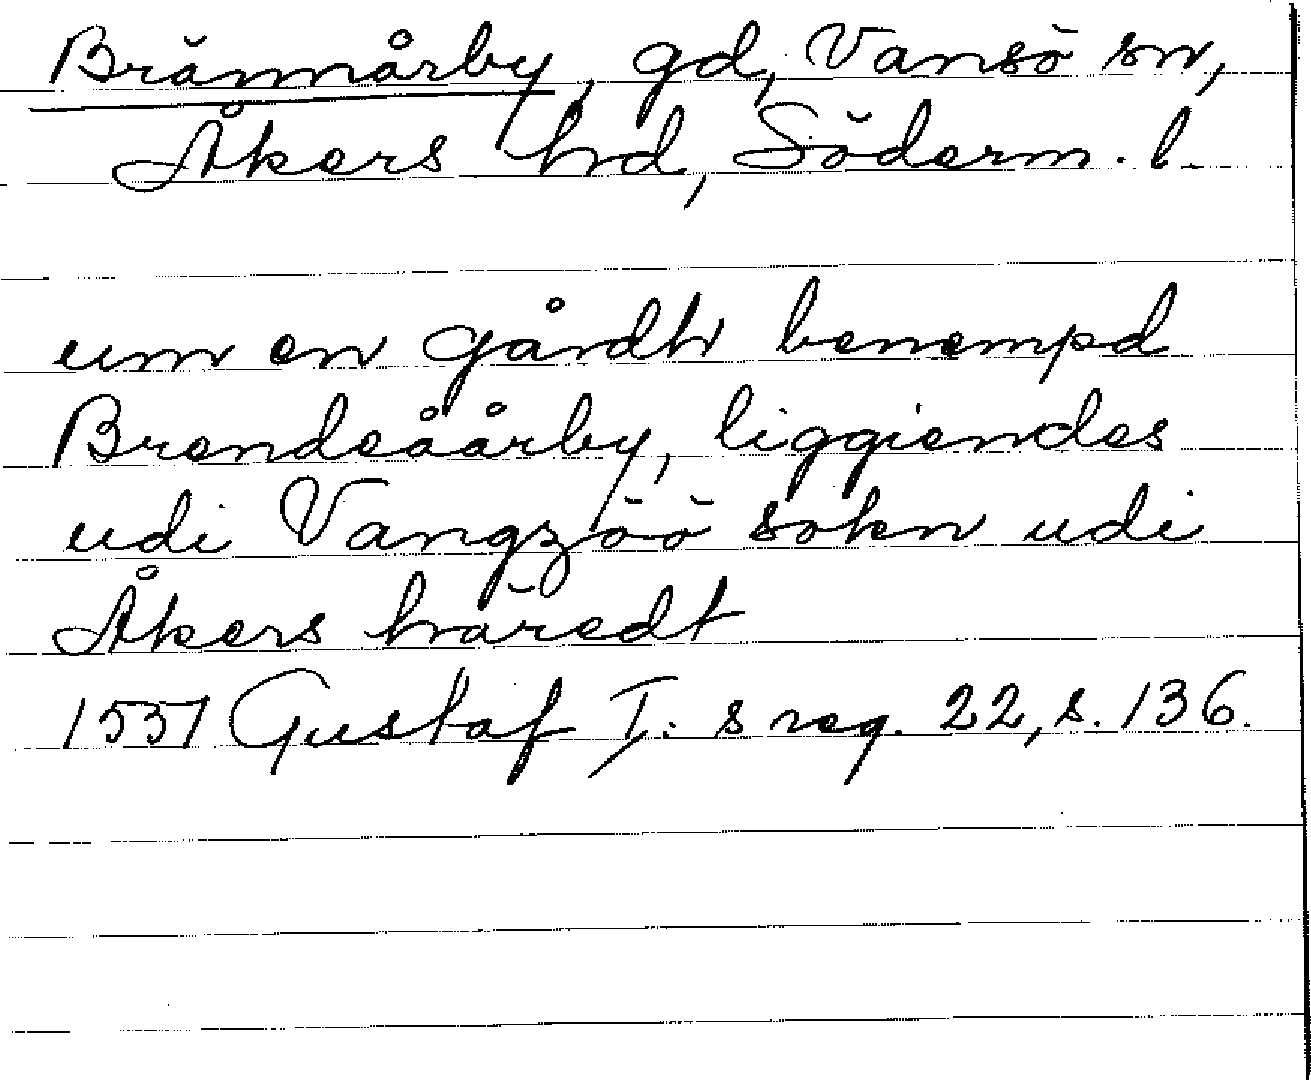 Brännårby, gd, Vansö sn,
Åkers hd, Söderm. l.
um en gårdh benempd
Brendeåårby, liggiendes
udi Vangzöö sokn udi
Åkers häredt
1551 Gustaf I: s reg. 22, s. 136.